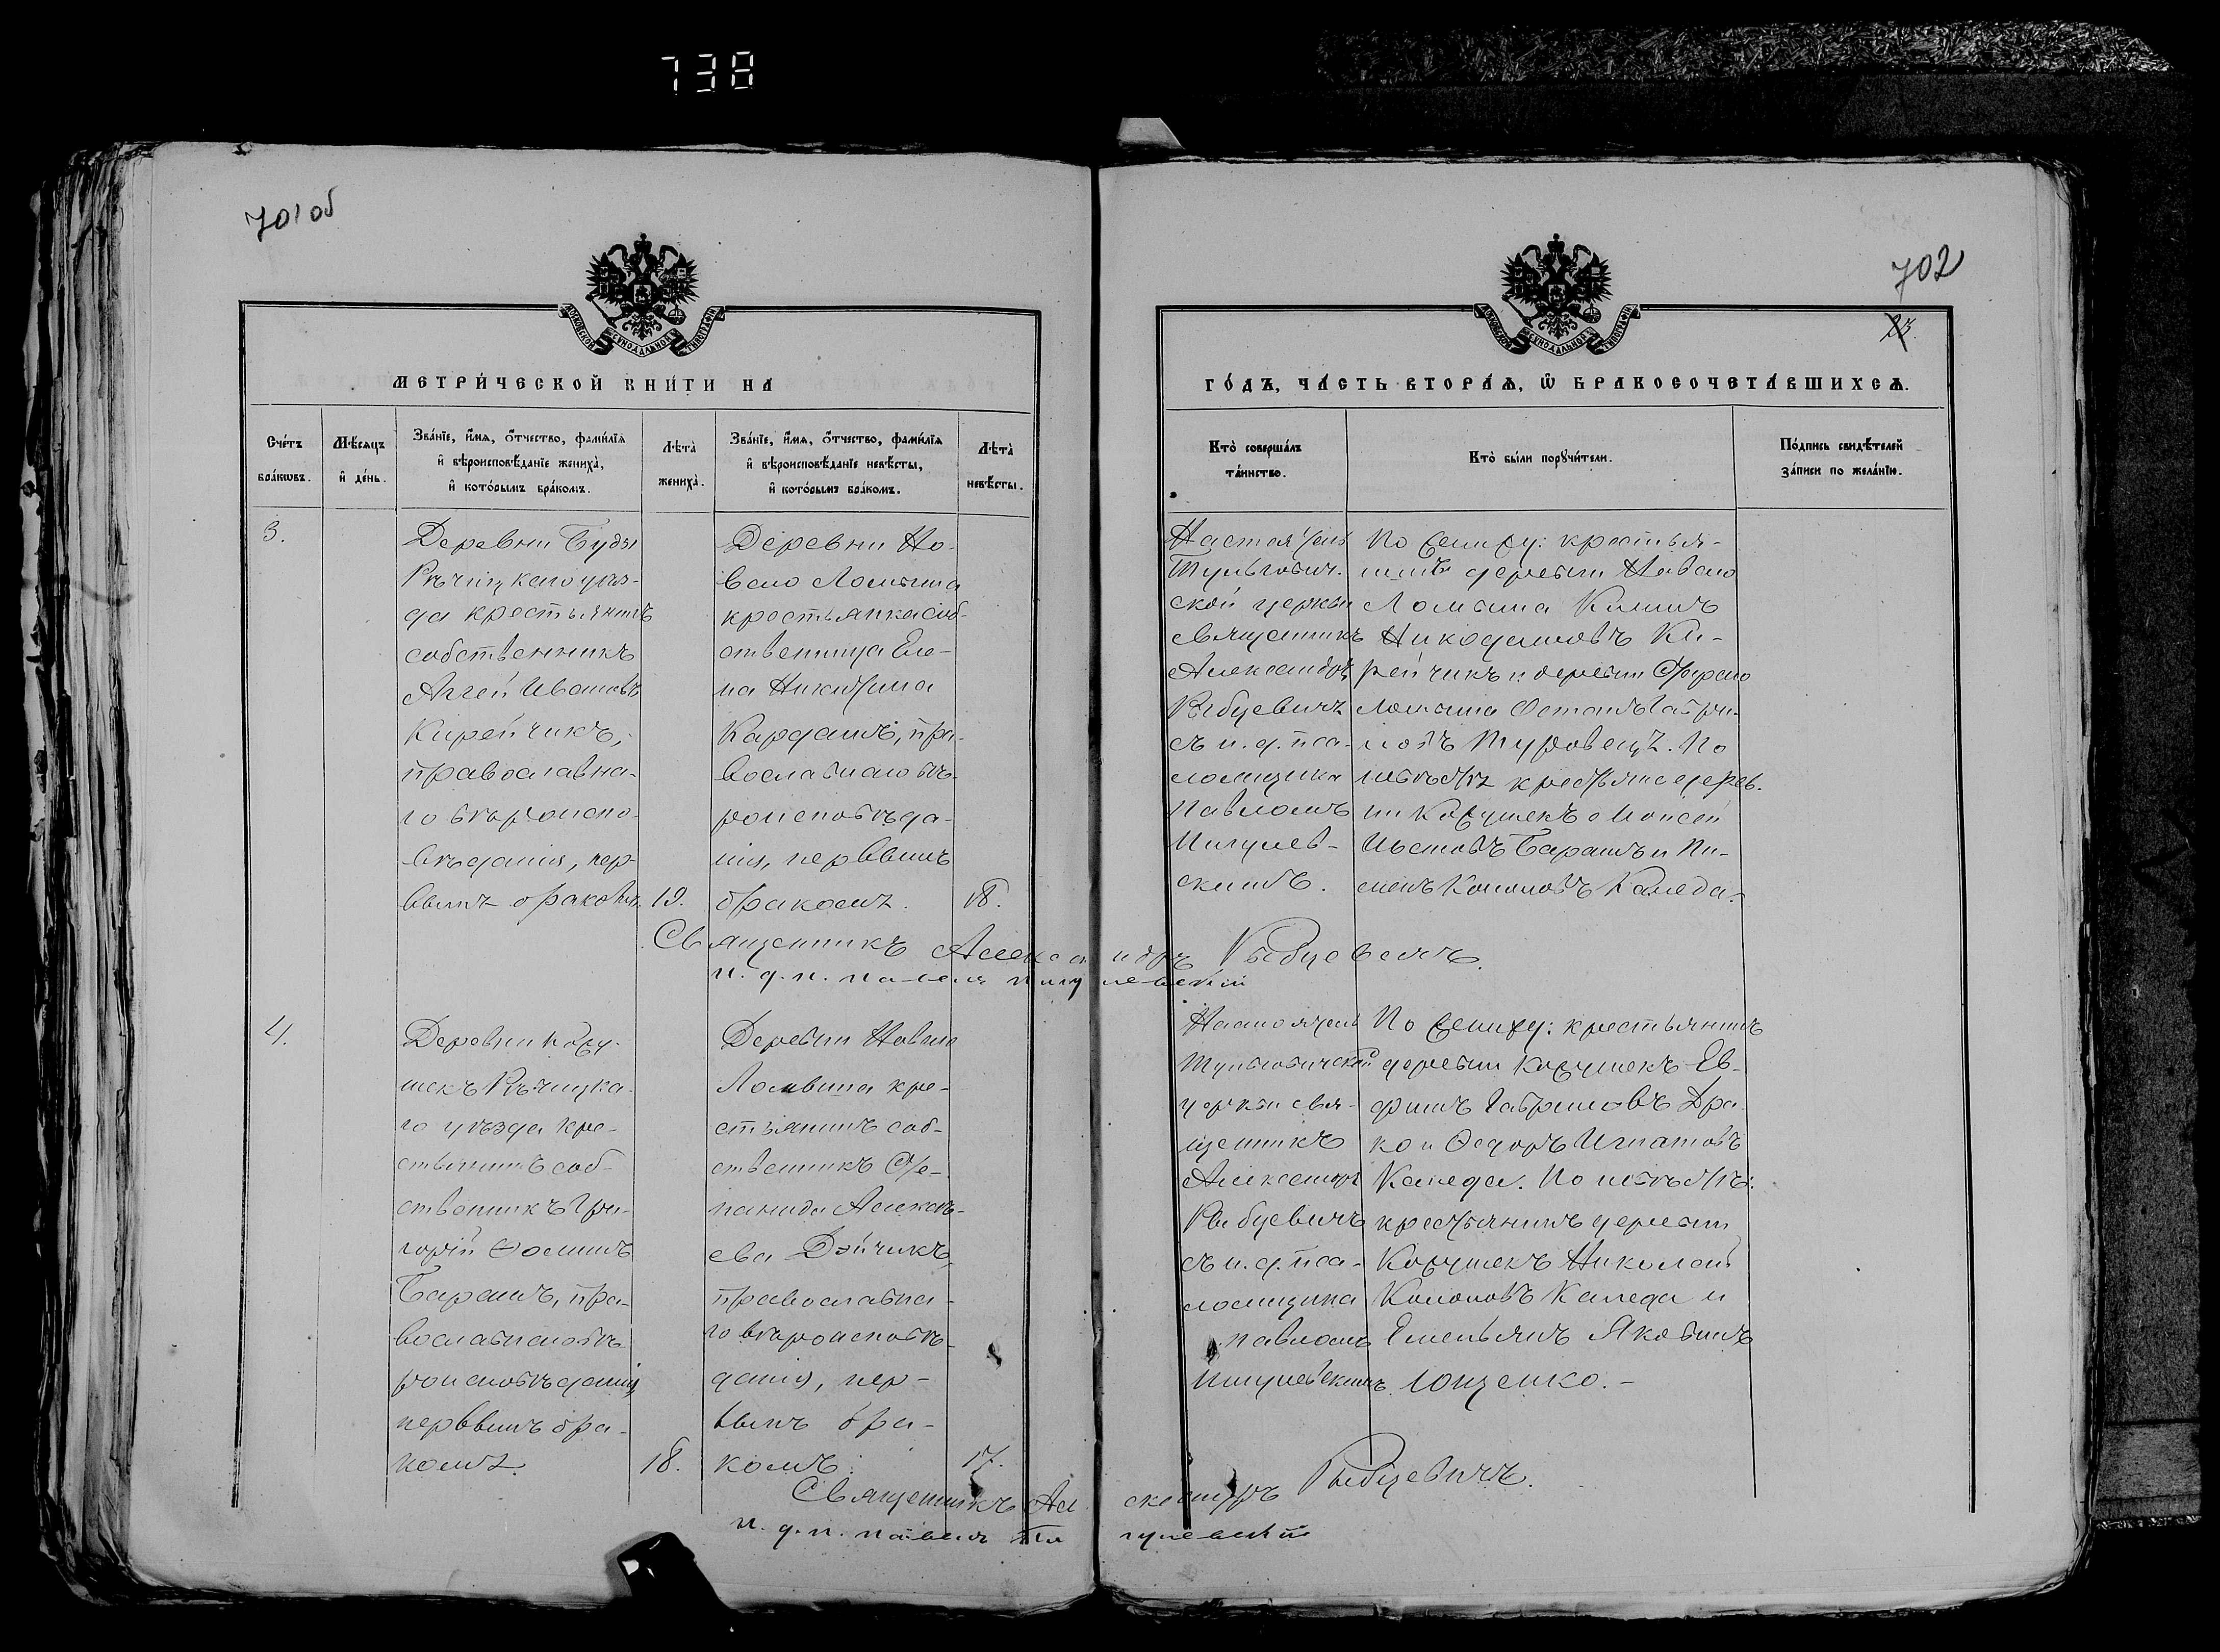 738
701 об
702
23.
МЕТРИЧЕСКОЙ КНИГИ НА
ГОДЪ, ЧАСТЬ ВТОРАЯ, Ѡ БРАКОСОЧЕТАВШИХСЯ.
Счетъ браковъ.
Мѣсяцъ и день.
Званіе, имя, отчество, фамилія
и вѣроисповѣданіе жениха,
и которымъ бракомъ.
Лѣта жениха.
Званіе, имя, отчество, фамилія
и вѣроисповѣданіе невѣсты,
и которымъ бракомъ.
Лѣта невѣсты.
Кто совершалъ
таинство.
Кто были поручители.
Подпись свидѣтелей
записи по желанію.
3.
Деревни Буды
Рѣчицкаго уѣз-
да крестьянинъ
собственникъ
Аггей Ивановъ
Кирейчикъ,
православна-
го вѣроиспо-
вѣданія, пер-
вымъ бракомъ
19.
Деревни Но-
ваго Ломыша
крестьянка соб-
ственница Еле-
на Никитина
Карданъ, пра-
вославнаго вѣ-
роисповѣда-
нія, первымъ
бракомъ.
18.
Тульгович-
ской церкви
священникъ
Александръ
Рыбцевичъ
съ и. д. пса-
ломщика
Павломъ
скимъ.
По жениху: крестья-
нинъ деревни Новаго
Ломыша
Никодимовъ Ки-
рейчикъ и деревни Стараго
Ломыша
Туровецъ. По
невѣстѣ крестьяне дерев-
ни Кожушекъ Моисей
Ивановъ Баранъ и Пи-
менъ Кононовъ Каледа.
Священникъ Александръ Рыбцевичъ.
и. д. п. Павелъ
4.
Деревни Кожу-
шекъ Рѣчицка-
го уѣзда кре-
стьянинъ соб-
ственникъ Гри-
горій Ѳоминъ
Баранъ, пра-
вославнаго вѣ-
роисповѣданія
первымъ бра-
комъ.
18.
Деревни Новаго
Ломыша кре-
стьянинъ соб-
ственникъ Сте-
панида Алексѣ-
ева Дзичикъ,
православна-
го вѣроисповѣ-
данія, пер-
вымъ бра-
комъ.
17.
Тульговической
церкви свя-
щенникъ
Александръ
Рыбцевичъ
съ и. д. пса-
ломщика
Павломъ
По жениху: крестьянинъ
деревни Кожушекъ Ев-
фимъ Гавриловъ Дра-
ко и Ѳедоръ Игнатовъ
Каледа. По невѣстѣ:
крестьянинъ деревни
Кожушекъ Николай
Кононовъ Каледа и
Емельянъ Яковлевъ
Ющенко.
Священникъ Александръ Рыбцевичъ.
и. д. п. Павелъ